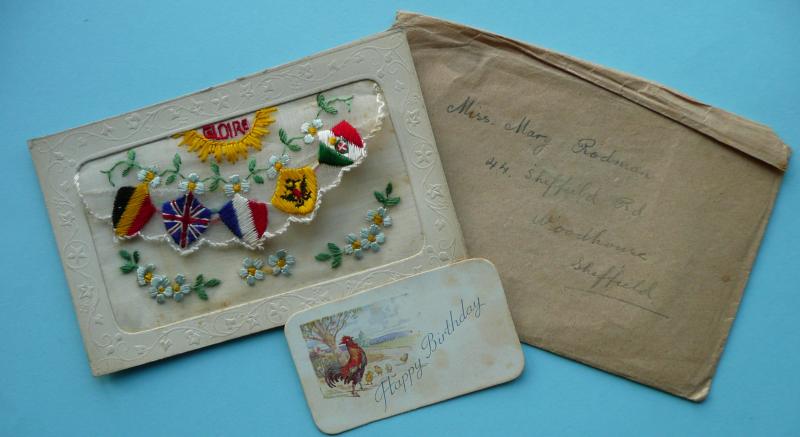 GLOIRE
Miss. Mary Rodman
44. Sheffield Rd
Woodhouse
Sheffield
Happy Birthday